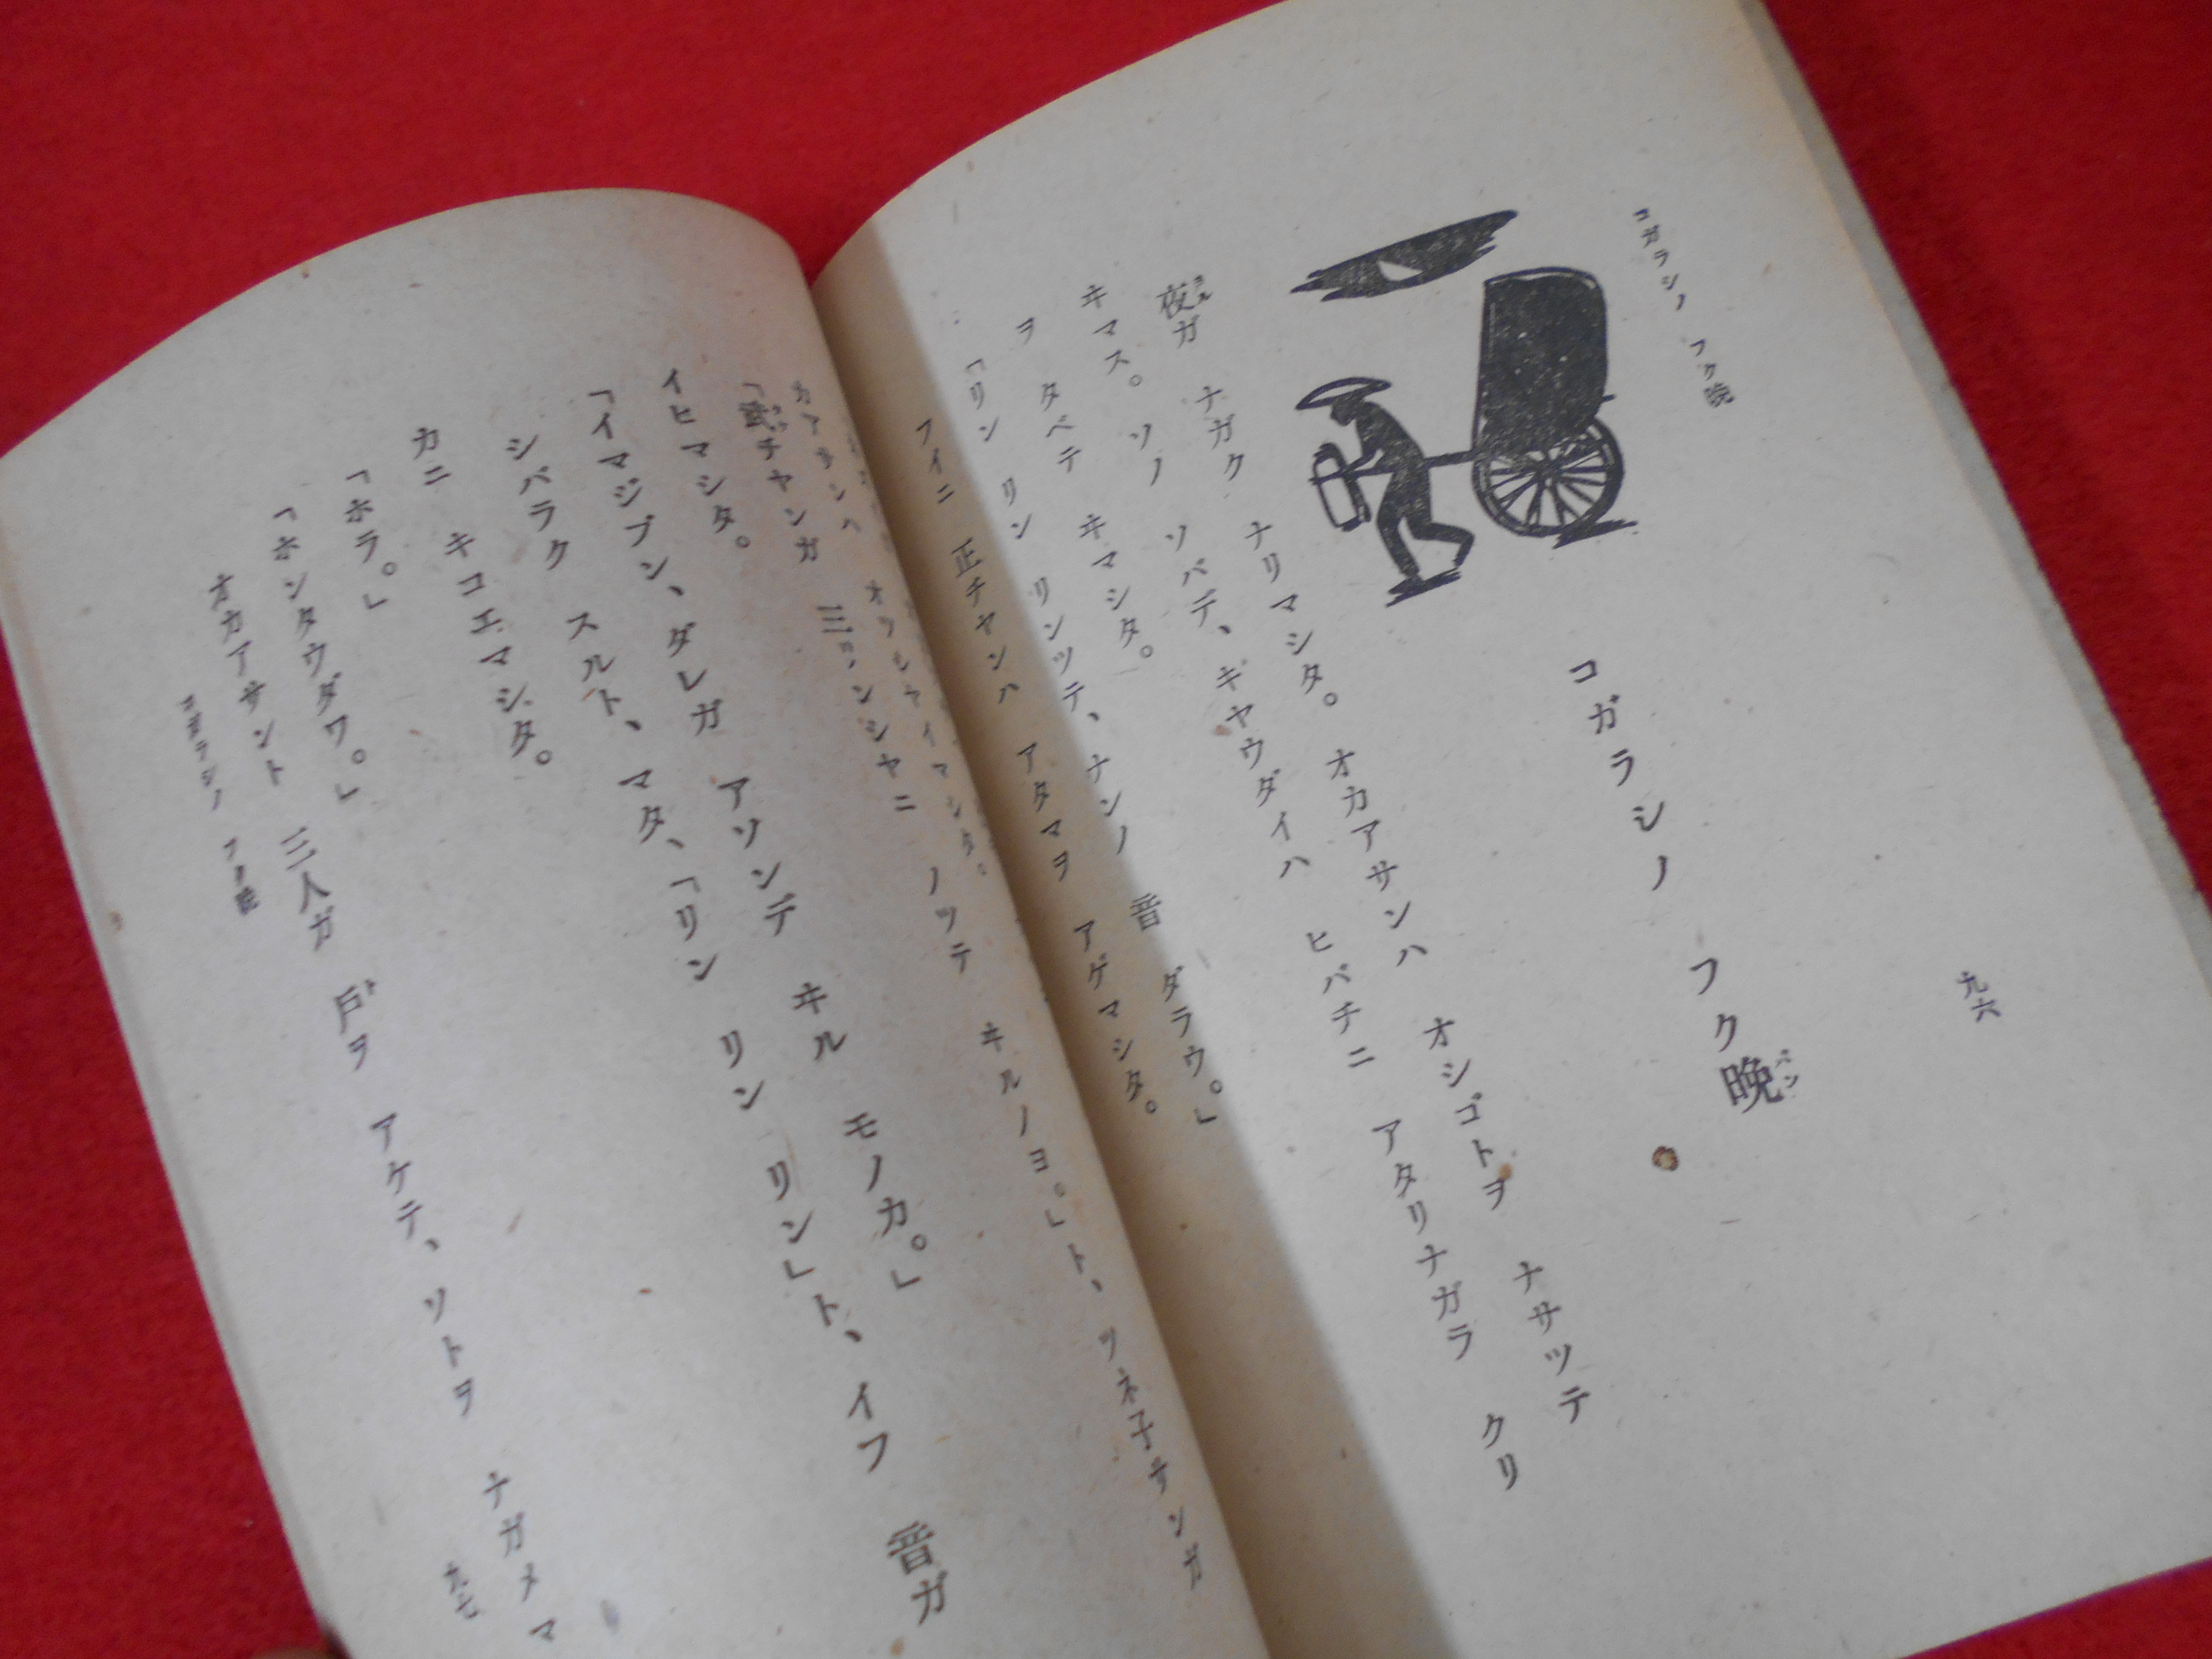 コガラシノ フク晩
九六
コガラシノ フク晩
バン
夜ガ ナガク ナリマシタ。 オカアサンハ オシゴトヲ ナサツテ
ヨル
ヰマス。 ソノ ソバデ、 ギヤウダイハ ヒバチニ アタリナガラ クリ
ヲ タベテ ヰマシタ。
「リン リン リンツテ、ナンノ 音 ダラウ。」
フイニ 正チヤンハ アタマヲ アゲマシタ。
オカアサンハ オツシヤイマシタ。
チヤンガ 三リンシヤニ ノツテ ヰルノヨ。」ト、 ツネ子サンガ
イヒマシタ。
「イマジブン、ダレガ アソンデ ヰル モノカ。」
シバラク スルト、マタ、「リン リン リン」ト、 イフ 音ガ
カニ キコエマシタ。
「ホラ。」
「ホンタウダワ。」
オカアサント 三人ガ 戸ヲ アケテ、ソトヲ ナガメマ
ト
コガラシノ フク晩
九七